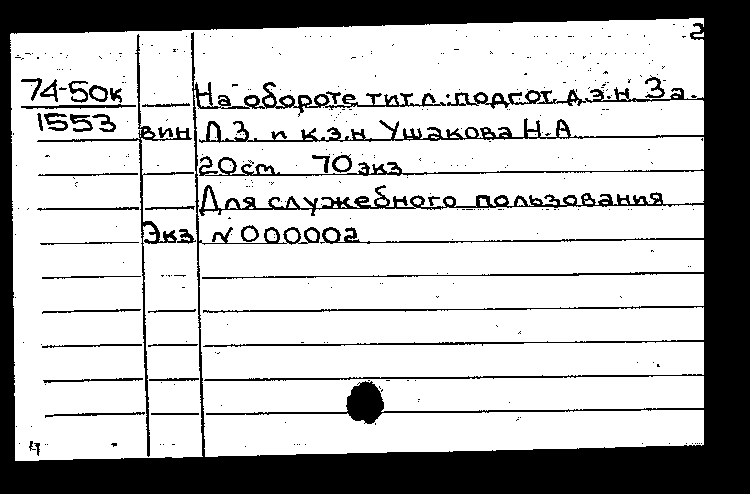 2
74-50к На обороте тит.л.:подгот. д.э.н. За-
1553 вин Л.З. и к.э.н. Ушакова Н.А.
20см. 70экз
Для служебного пользования
Экз. N 000002.
4